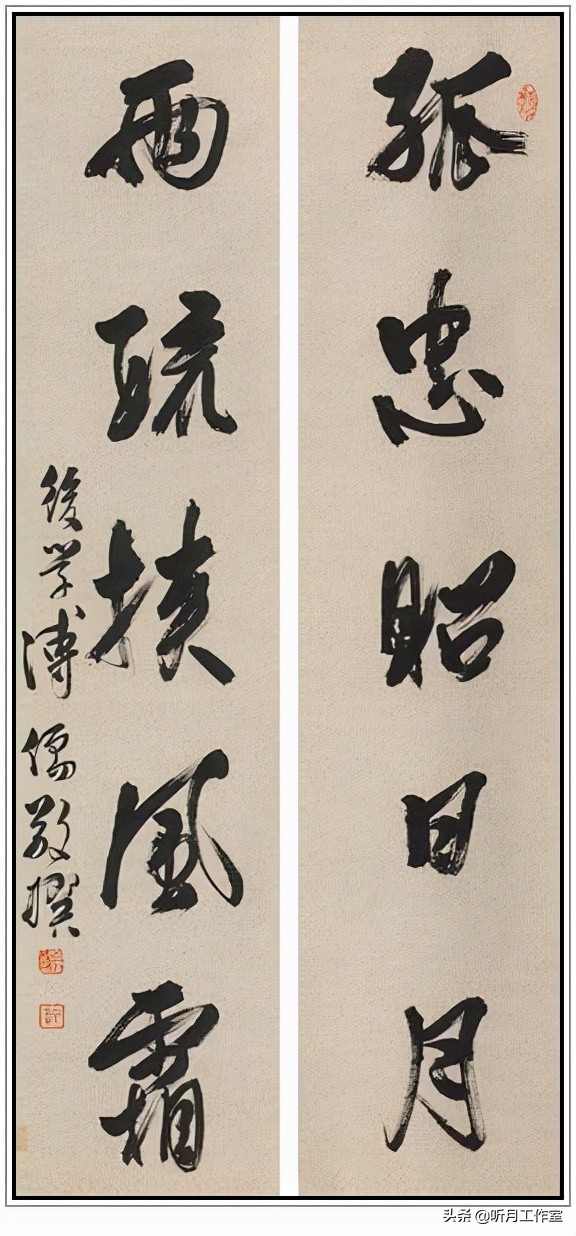 孤忠昭日月
兩疏挟風霜
後学溥儒敬撰
头条 @听月工作室